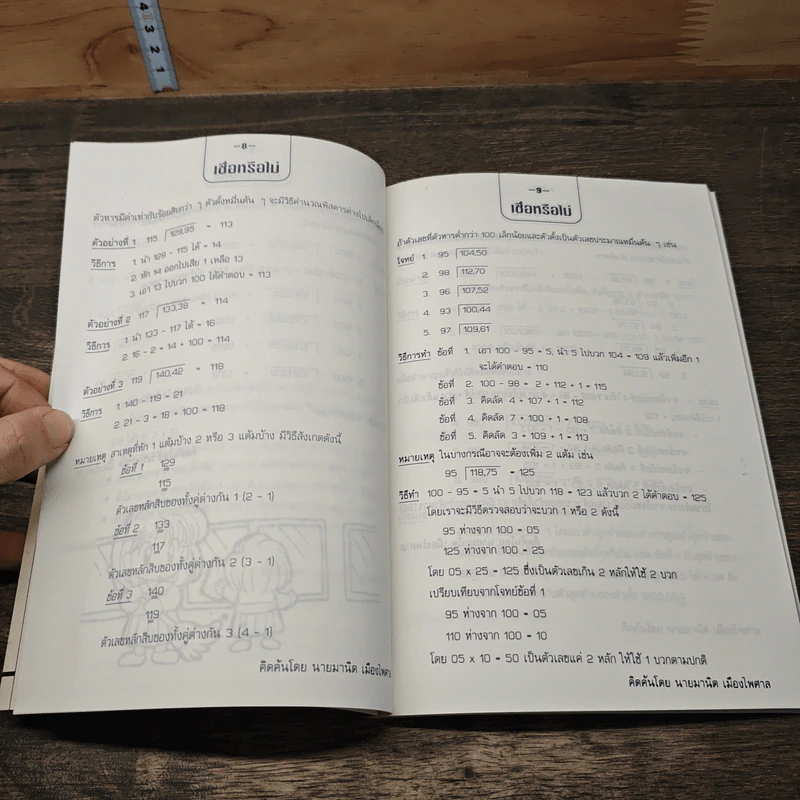 4 3 2 1
-8-
เชื่อหรือไม่
ตัวหารมีค่าเท่ากับร้อยสิบกว่า ๆ ตัวตั้งหมื่นต้น ๆ จะมีวิธีคำนวณพิสดารต่างไปเล็กน้อย
ตัวอย่างที่ 1 115 129,95 = 113
วิธีการ 1. นำ 129 - 115 ได้ = 14
2. หัก 14 ออกไปเสีย 1 เหลือ 13
3. เอา 13 ไปบวก 100 ได้คำตอบ = 113
ตัวอย่างที่ 2 117 133,38 = 114
วิธีการ 1. นำ 133 - 117 ได้ = 16
2. 16 - 2 = 14 + 100 = 114
ตัวอย่างที่ 3 119 140,42 = 118
วิธีการ 1. 140 - 119 = 21
2. 21 - 3 = 18 + 100 = 118
หมายเหตุ สาเหตุที่หัก 1 แต้มบ้าง 2 หรือ 3 แต้มบ้าง มีวิธีสังเกตดังนี้
ข้อที่ 1 129
115
ตัวเลขหลักสิบของทั้งคู่ต่างกัน 1 (2 - 1)
ข้อที่ 2 133
117
ตัวเลขหลักสิบของทั้งคู่ต่างกัน 2 (3 - 1)
ข้อที่ 3 140
119
ตัวเลขหลักสิบของทั้งคู่ต่างกัน 3 (4 - 1)
คิดค้นโดย นายมานิต เมืองไพศาล
-9-
เชื่อหรือไม่
ถ้าตัวเลขที่ตัวหารต่ำกว่า 100 เล็กน้อยและตัวตั้งเป็นตัวเลขประมาณหมื่นต้น ๆ เช่น
โจทย์ 1. 95 104,50
2. 98 112,70
3. 96 107,52
4. 93 100,44
5. 97 109,61
วิธีการทำ ข้อที่ 1. เอา 100 - 95 = 5, นำ 5 ไปบวก 104 = 109 แล้วเพิ่มอีก 1
จะได้คำตอบ = 110
ข้อที่ 2. 100 - 98 = 2 + 112 + 1 = 115
ข้อที่ 3. คิดลัด 4 + 107 + 1 = 112
ข้อที่ 4. คิดลัด 7 + 100 + 1 = 108
ข้อที่ 5. คิดลัด 3 + 109 + 1 = 113
หมายเหตุ ในบางกรณีอาจจะต้องเพิ่ม 2 แต้ม เช่น
95 118,75 = 125
วิธีทำ 100 - 95 = 5 นำ 5 ไปบวก 118 = 123 แล้วบวก 2 ได้คำตอบ = 125
โดยเราจะมีวิธีตรวจสอบว่าจะบวก 1 หรือ 2 ดังนี้
95 ห่างจาก 100 = 05
125 ห่างจาก 100 = 25
โดย 05 x 25 = 125 ซึ่งเป็นตัวเลขเกิน 2 หลักให้ใช้ 2 บวก
เปรียบเทียบจากโจทย์ข้อที่ 1
95 ห่างจาก 100 = 05
110 ห่างจาก 100 = 10
โดย 05 x 10 = 50 เป็นตัวเลขแค่ 2 หลัก ให้ใช้ 1 บวกตามปกติ
คิดค้นโดย นายมานิต เมืองไพศาล